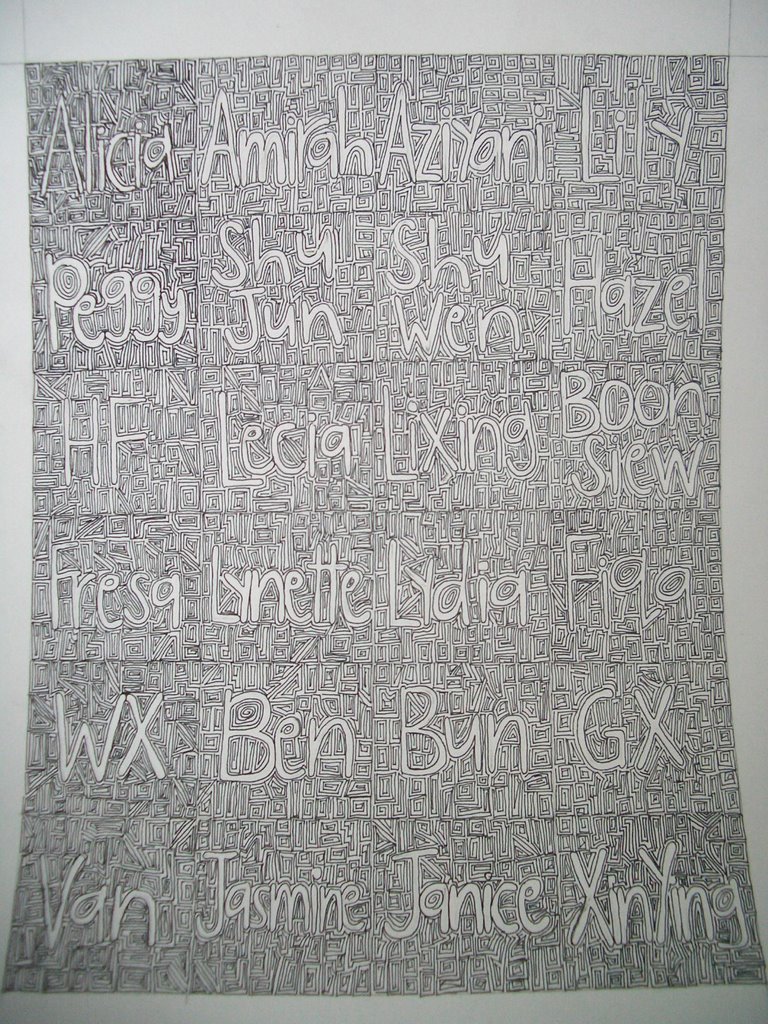 Alicia Amirah Aziyani Lily
Peggy Shu Jun Shu Wen Hazel
HF Lecia Lixing Boon Siew
Fresa Lynette Lydia Fiqa
WX Ben Bun GX
Van Jasmine Janice XinYing